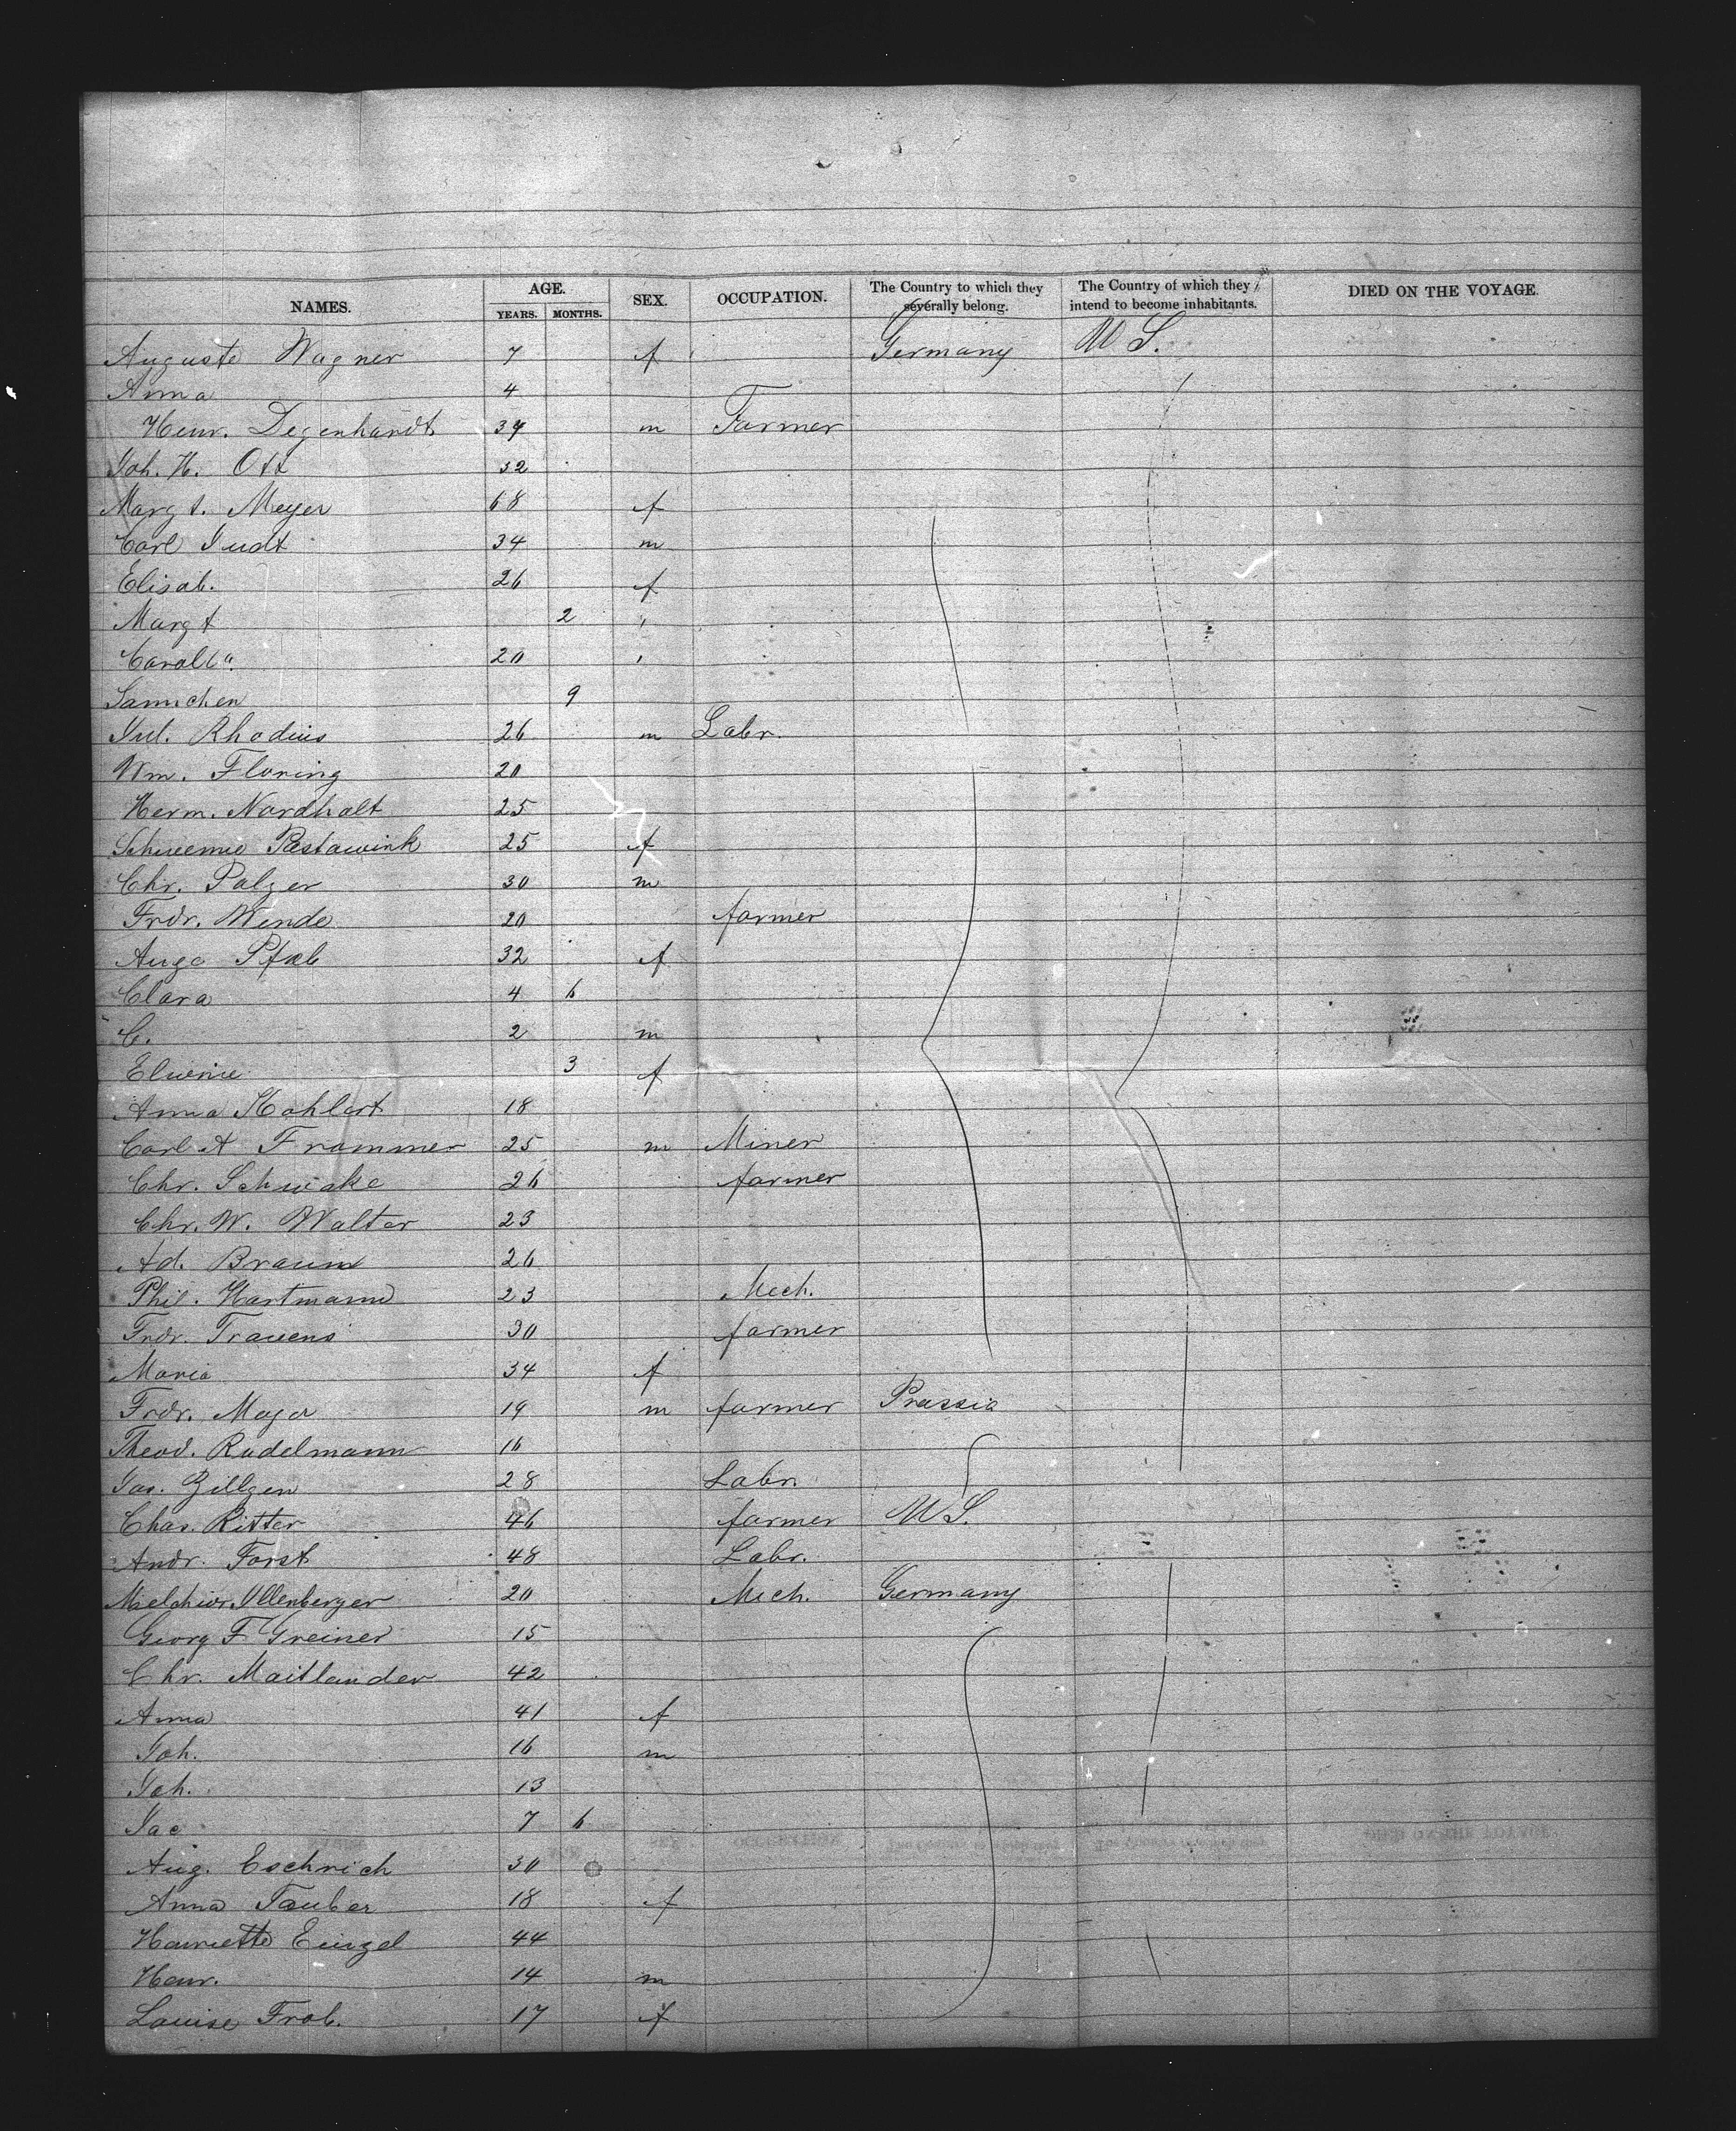 NAMES. AGE. YEARS. MONTHS. SEX. OCCUPATION. The Country to which they severally belong. The Country of which they intend to become inhabitants. DIED ON THE VOYAGE.
Auguste Wagner 7 f Germany U S.
Anna 4
Henr. Degenhardt 34 m Farmer
Joh. H. Ott 32
Margt. Meyer 68 f
Carl Judt 34 m
Elisab. 26 f
Margt 2 "
20 "
9
Jul. Rhodius 26 m Labr.
Wm. Floring 20
Herm. Nordholt 25
25 f
Chr. Palzer 30 m
Frdr. Wende 20 farmer
Auge 32 f
Clara 4 6
C. 2 m
Elwine 3 f
Anna Kohlert 18
Carl A Frammer 25 m Miner
Chr. Schwake 26 farmer
Chr. W. Walter 23
Ad. Braun 26
Phil. Hartmann 23 Mech.
Frdr. Travens 30 farmer
Maria 34 f
Frdr. Mayer 19 m farmer Prussia
Theod. Rudelmann 16
Jos. Zillgen 28 Labr.
Chas. Ritter 46 farmer U S.
Andr. Forst 48 Labr.
Melchior Illenberger 20 Mech. Germany
Georg F Greiner 15
Chr. Maitlander 42
Anna 41 f
Joh. 16 m
Joh. 13
Jac 7 6
Aug. Eschrich 30
Anna Tauber 18 f
Henriette Einzel 44
Henr. 14 m
Louise Frob. 17 f